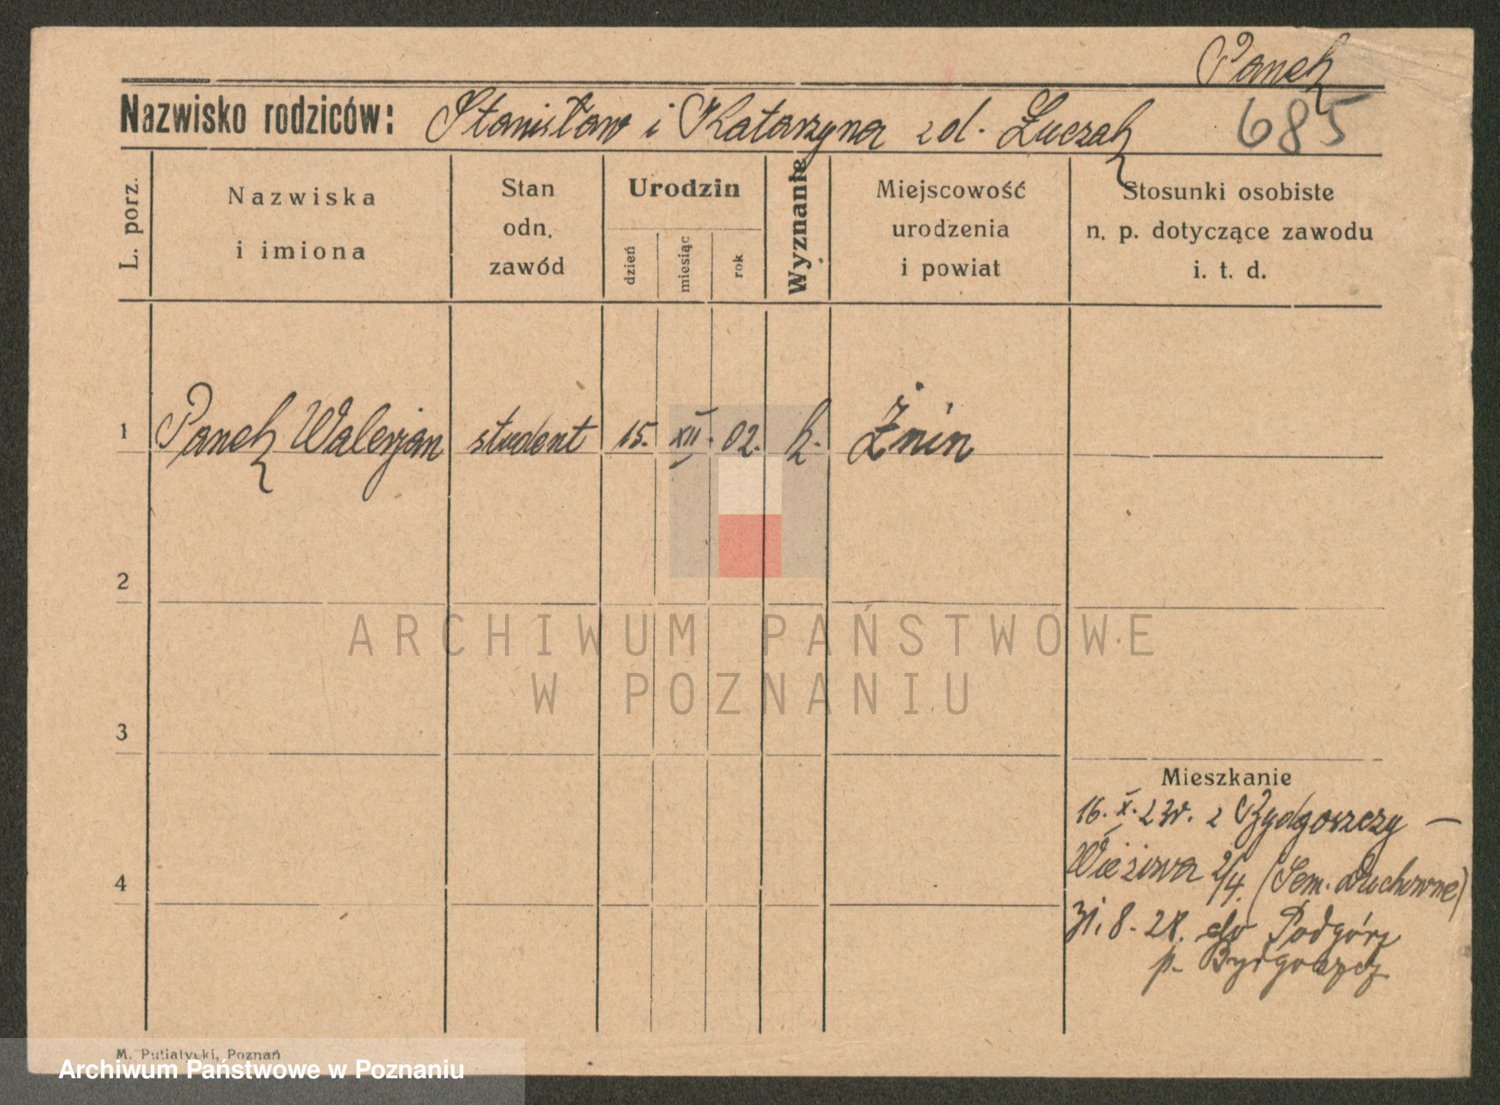 Panek
685
Nazwisko rodziców: Stanisław i Katarzyna zd. Łuczak
L. porz.
Nazwiska
i imiona
Stan
odn.
zawód
Urodzin
dzień
miesiąc
rok
Wyznanie
Miejscowość
urodzenia
i powiat
Stosunki osobiste
n. p. dotyczące zawodu
i. t. d.
1 Panek Walerjan student 15. XII. 02. k. Żnin
2
ARCHIWUM PAŃSTWOWE
W POZNANIU
3
Mieszkanie
16. X. 23r. z Bydgoszczy —
Wieżowa 2/4. (Sem. Duchowne)
4
31. 8. 28. do Podgórz
p. Bydgoszcz
M. Putiatycki, Poznań
Archiwum Państwowe w Poznaniu